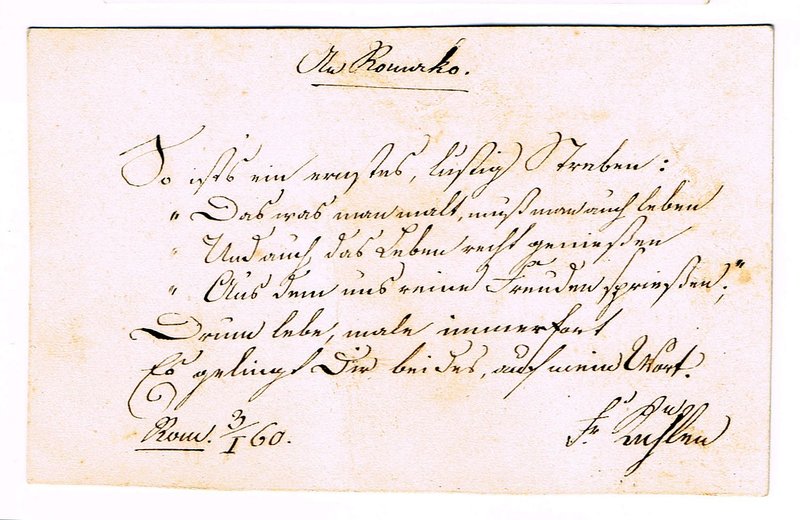 An Romako.
So ists ein ernstes, lustig Streben:
„Das was man malt, muß man auch leben
„Und auch das Leben recht genießen
„Aus dem uns reine Freuden sprießen;"
Drum lebe, male immerfort
Es gelingt Dir beides, auf mein Wort.
Rom. 3/I 60.
Fr